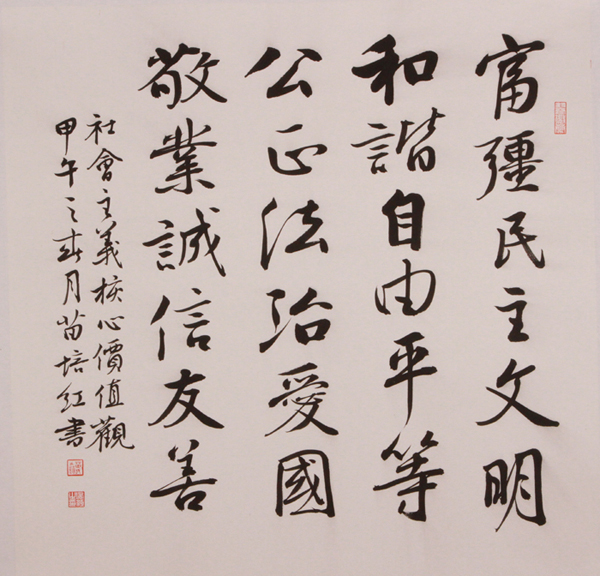 富疆民主文明
和諧自由平等
公正法治愛國
敬業誠信友善
社會主義核心價值觀
甲午之春月苗培红書